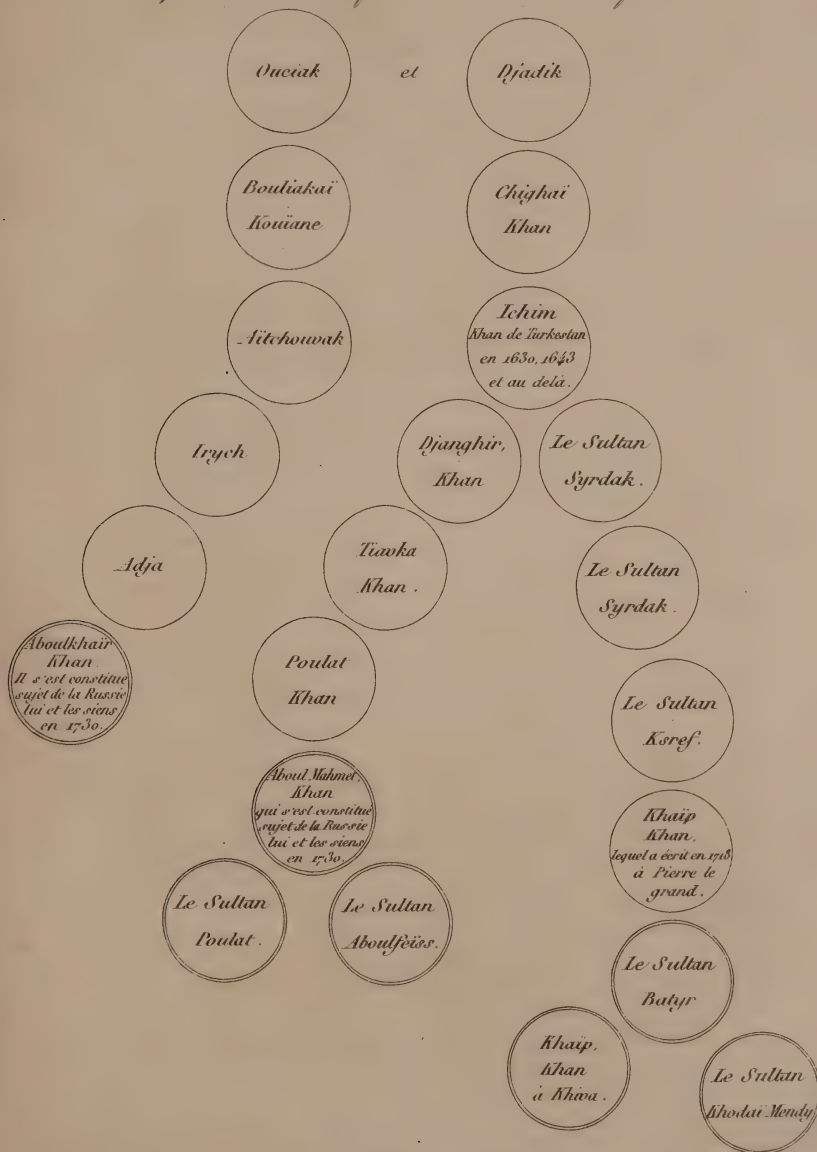 Ouciak
et
Djadik
Bouliakaï
Kouïane
Chighaï
Khan
Aïtchouvak
Ichim
Khan de Turkestan
en 1630, 1643
et au delà.
Irych
Djanghir,
Khan
Le Sultan
Syrdak.
Adja
Tiavka
Khan.
Le Sultan
Syrdak.
Aboulkhaïr
Khan.
Il s'est constitué
sujet de la Russie
lui et les siens
en 1730.
Poulat
Khan
Le Sultan
Ksref.
Aboul Mahmet,
Khan
qui s'est constitué
sujet de la Russie
lui et les siens
en 1730.
Khaïp
Khan,
lequel a écrit en 1718
à Pierre le
grand.
Le Sultan
Poulat.
Le Sultan
Aboulfeïss.
Le Sultan
Batyr
Khaïp,
Khan
à Khiva.
Le Sultan
Khodaï Mendy